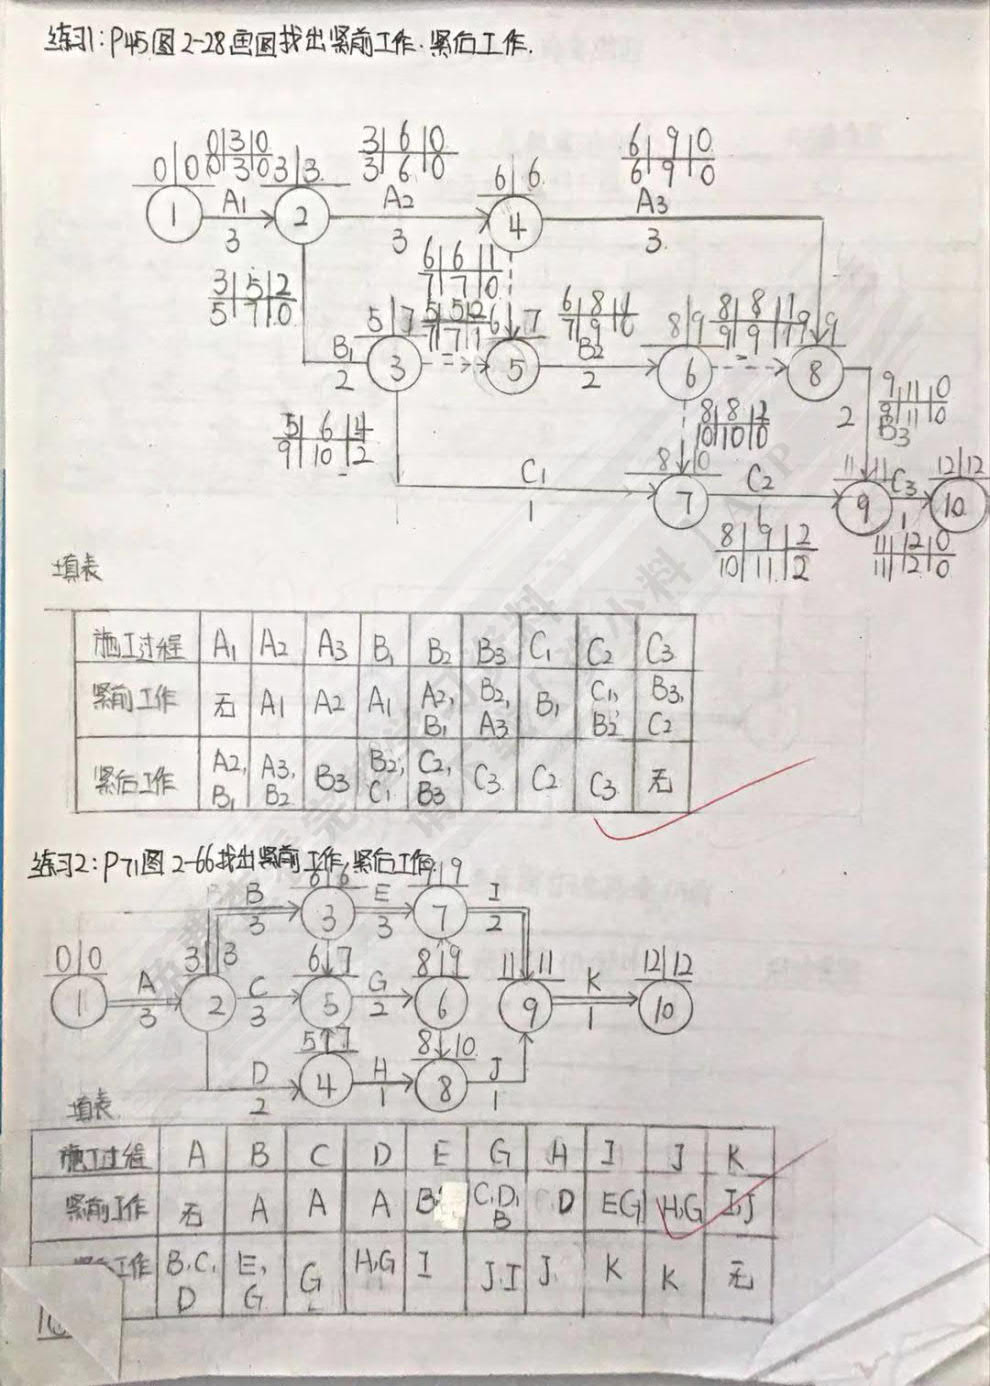 练习1:P45图2-28画图找出紧前工作.紧后工作.
0|3|0 3|6|0 6|9|0
0|0 0|3|0 3|3 3|6|0 6|6 6|9|0
1 A1 2 A2 4 A3
3 3 3.
3|5|2 6|6|1
5|7|0 7|7|0
5|7 5|5|2 6|7 6|8|1 8|9 8|8|1 9|9
7|7|1 7|9|0 9|9|1
B1 3 5 B2 6 8
2 2 2
9|11|0
9|11|0
B3
5|6|4 8|8|2
9|10|2 10|10|0
C1 7 C2 9 C3 10
1 1 1
11|11 12|12
8|9|2 11|12|0
10|11|2 11|12|0
填表
施工过程 A1 A2 A3 B1 B2 B3 C1 C2 C3
紧前工作 无 A1 A2 A1 A2,B1 B2,A3 B1 C1,B2 B3,C2
紧后工作 A2,B1 A3,B2 B3 B2,C1 C2,B3 C3 C2 C3 无
练习2:P71图2-66找出紧前工作,紧后工作.
B 3 E 7 I
3 3 2
0|0 3|3 6|7 8|9 11|11 12|12
1 A 2 C 5 G 6 9 K 10
3 3 2 1
8|10
D 4 H 8 J
2 1 1
填表
施工过程 A B C D E G H I J K
紧前工作 无 A A A B C,D,B D EG H,G I,J
工作 B,C,D E,G G H,G I J,I J K K 无